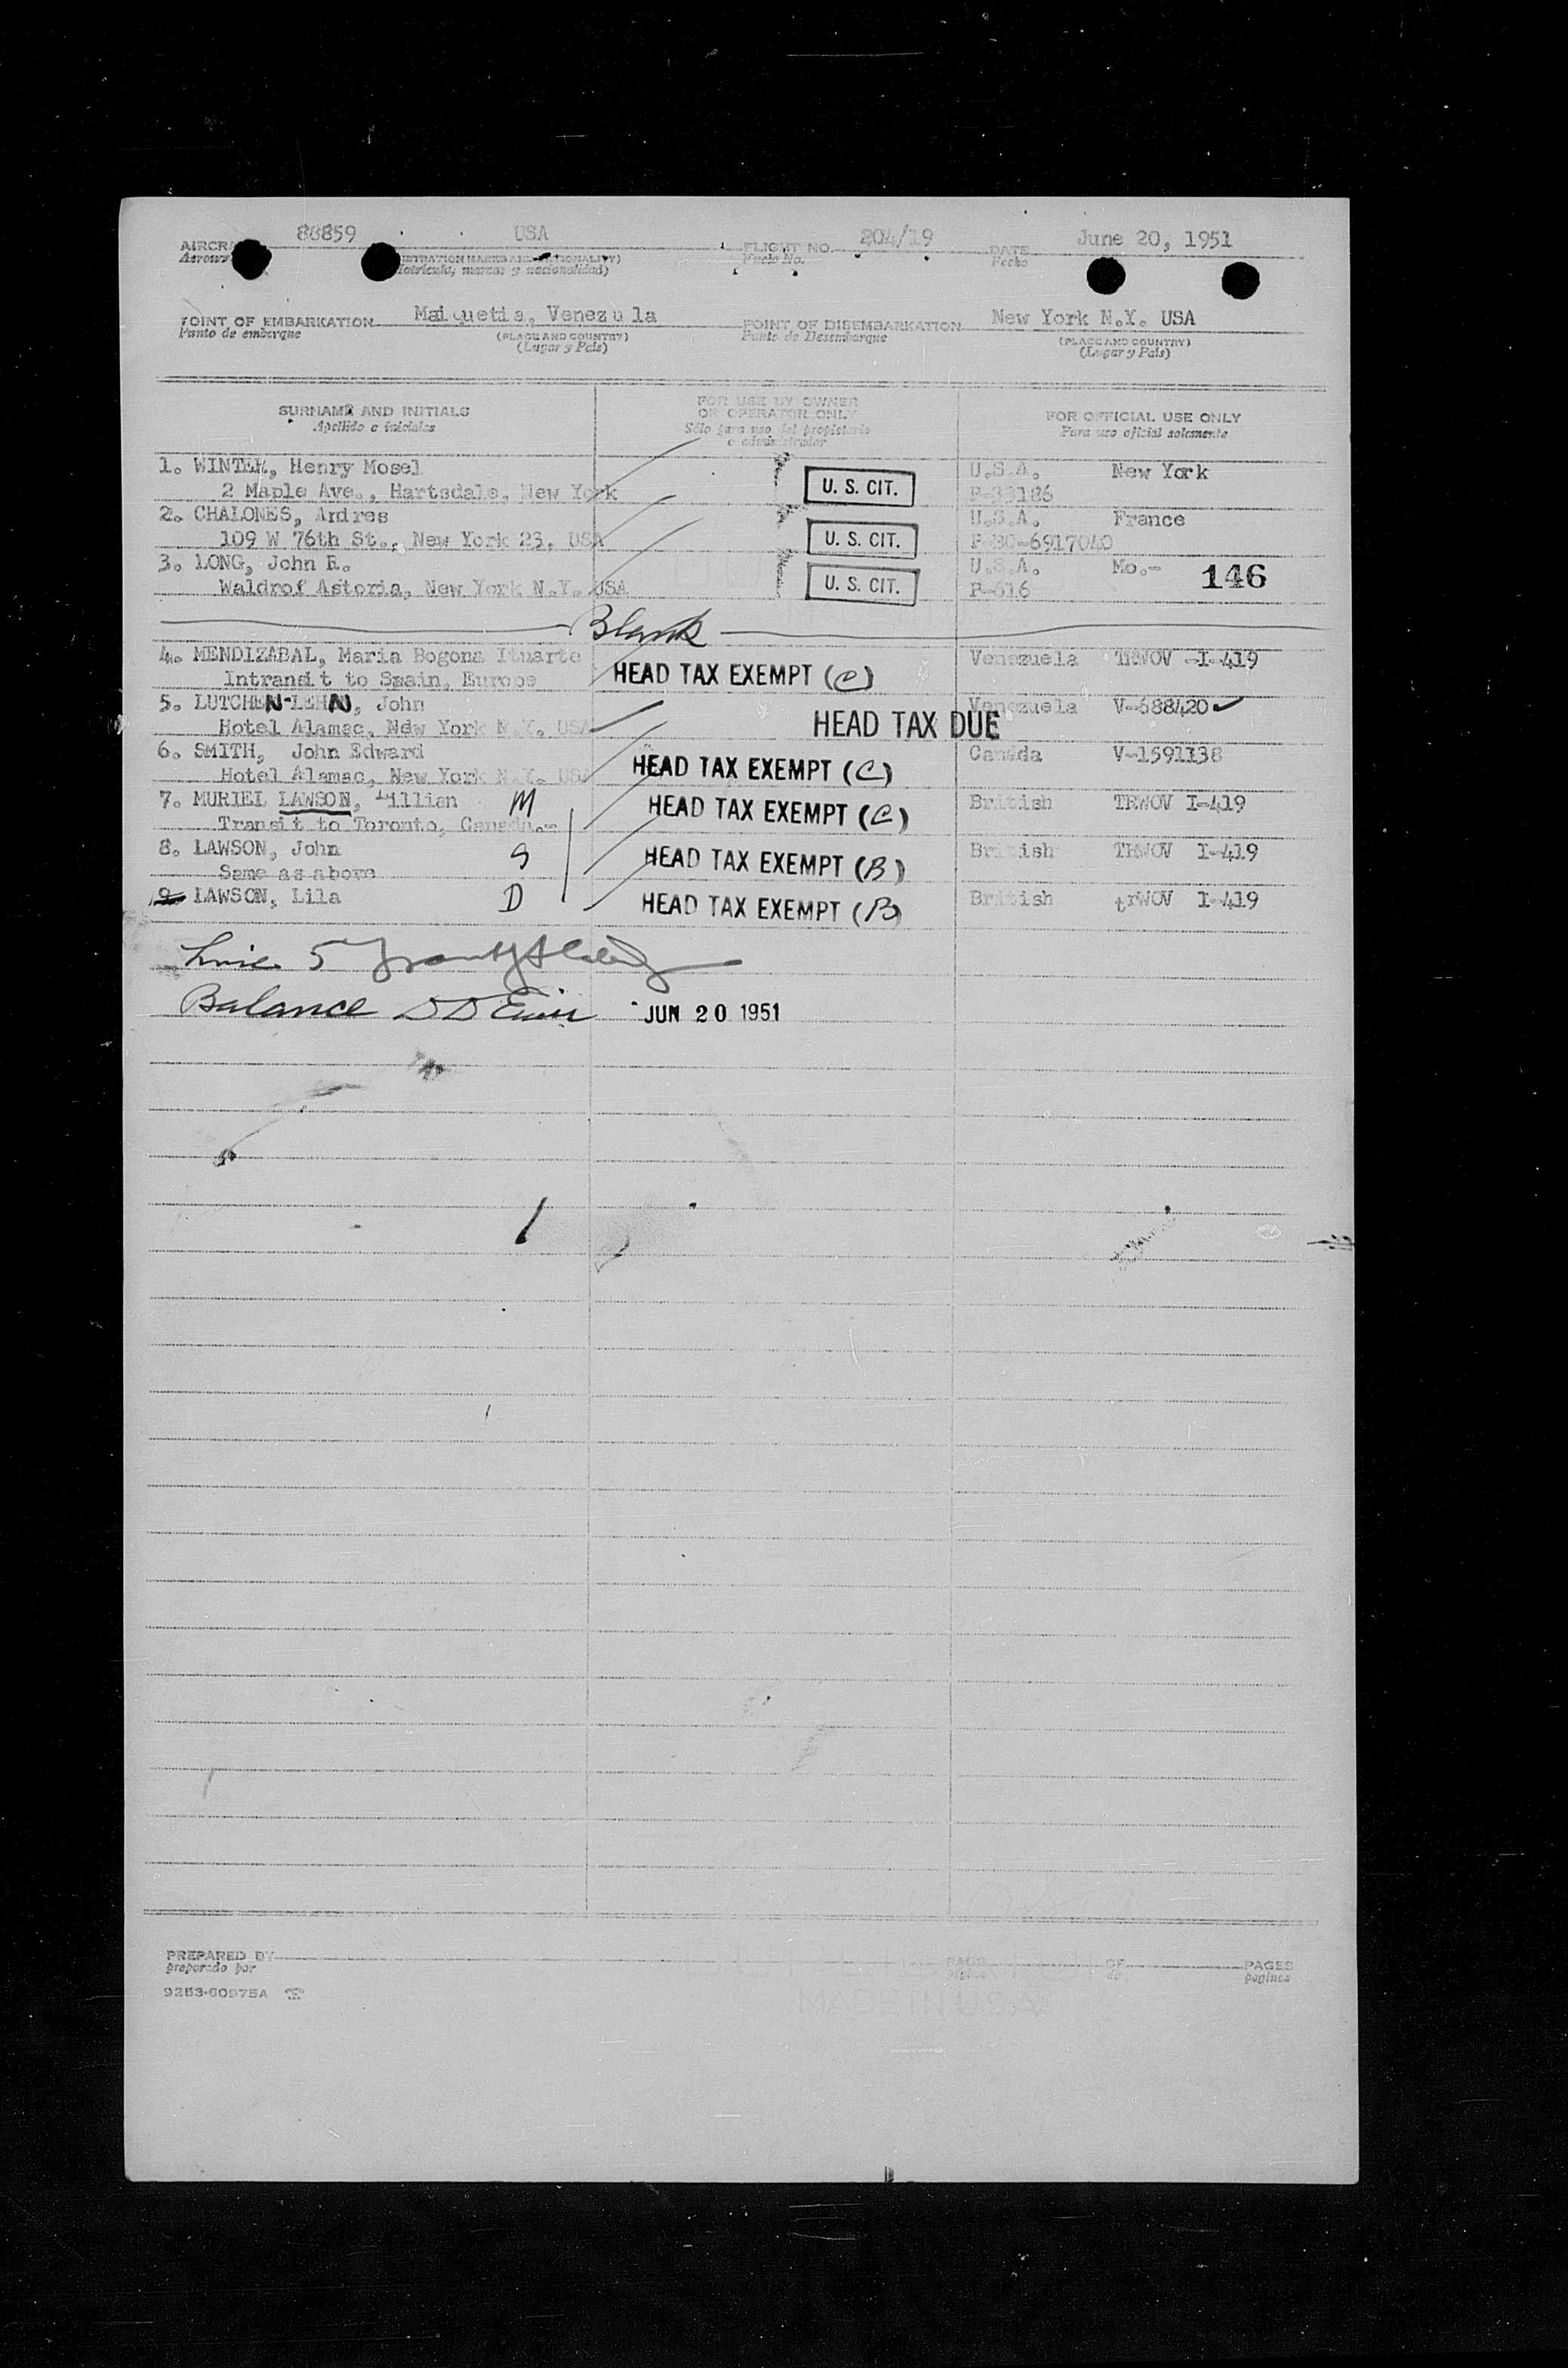 88859 USA 204/19 June 20, 1951
AIRCR FLIGHT NO. DATE
Vuelo No. Fecha
(Matrícula, marcas y nacionalidad)
Maiquetia, Venezu la New York N.Y. USA
POINT OF EMBARKATION POINT OF DISEMBARKATION
Punto de embarque (PLACE AND COUNTRY) Punto de Desembarque (PLACE AND COUNTRY)
(Lugar y País) (Lugar y País)
SURNAME AND INITIALS FOR USE BY OWNER OR OPERATOR ONLY FOR OFFICIAL USE ONLY
Apellido e iniciales Sólo para uso del propietario o administrador Para uso oficial solamente
1. WINTER, Henry Mosel U.S.A. New York
2 Maple Ave., Hartsdale, New York U. S. CIT. P-33186
2. CHALONES, Andres U.S.A. France
109 W 76th St., New York 23, USA U. S. CIT. P-BC-6917040
3. LONG, John R. U.S.A. Mo.- 146
Waldrof Astoria, New York N.Y. USA U. S. CIT. P-616
Blank
4. MENDIZABAL, Maria Bogona Ituarte Venezuela TRWOV -I-419
Intransit to Spain, Europe HEAD TAX EXEMPT (C)
5. LUTCHEN-LEHN, John Venezuela V-688420
Hotel Alamac, New York N.Y. USA HEAD TAX DUE
6. SMITH, John Edward Canada V-1591138
Hotel Alamac, New York N.Y. USA HEAD TAX EXEMPT (C)
7. MURIEL LAWSON, Lillian M British TRWOV I-419
Transit to Toronto, Canada.- HEAD TAX EXEMPT (C)
8. LAWSON, John S British TRWOV I-419
Same as above HEAD TAX EXEMPT (B)
9 LAWSON, Lila D HEAD TAX EXEMPT (B) British trWOV I-419
Line 5
Balance JUN 20 1951
PREPARED BY PAGE OF PAGES
preparado por página de páginas
9253-60975A
MADE IN U S A